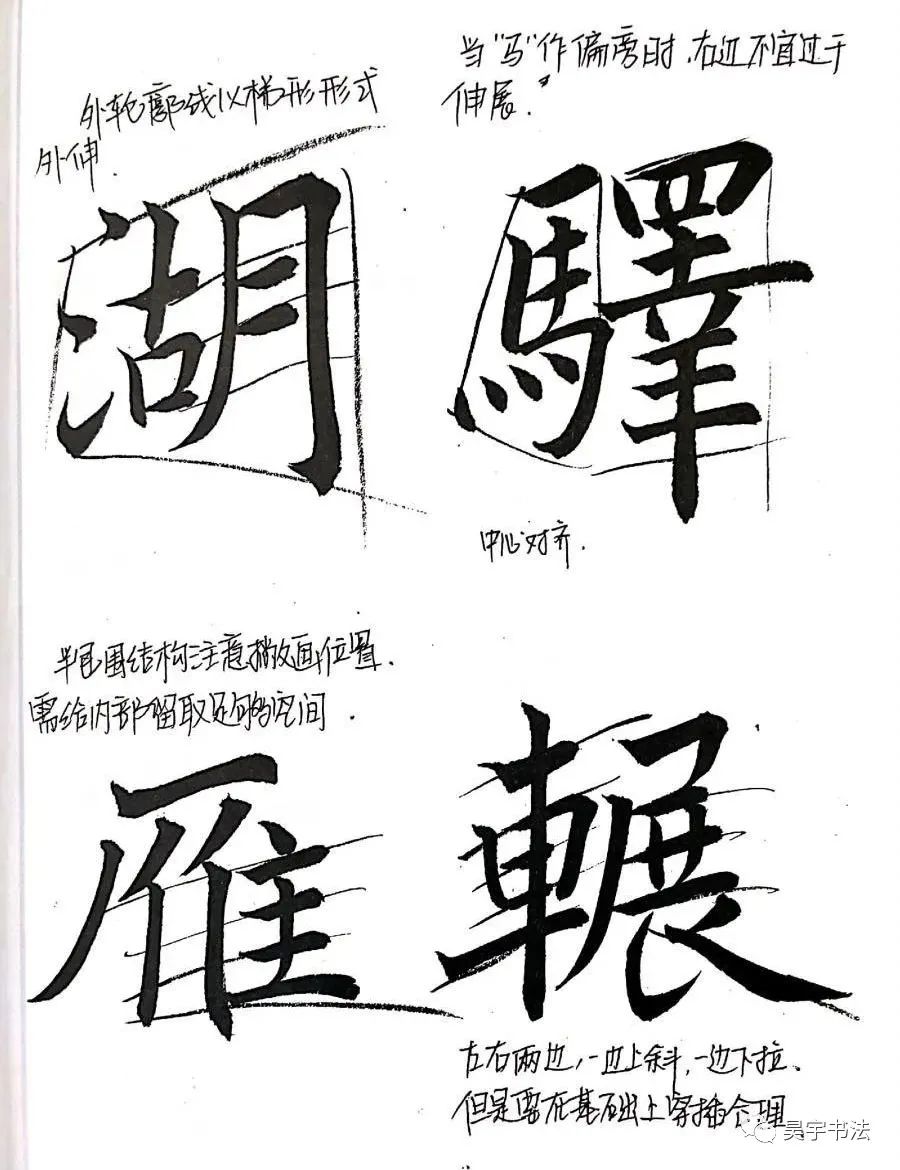 外轮廓线以梯形形式
外伸.
湖
当"马"作偏旁时,右边不宜过于
伸展.
驛
中心对齐.
半包围结构注意撇画位置.
需给内部留取足够的空间.
雁
輾
左右两边,一边上斜,一边下拉.
但是要在基础上穿插合理
昊宇书法